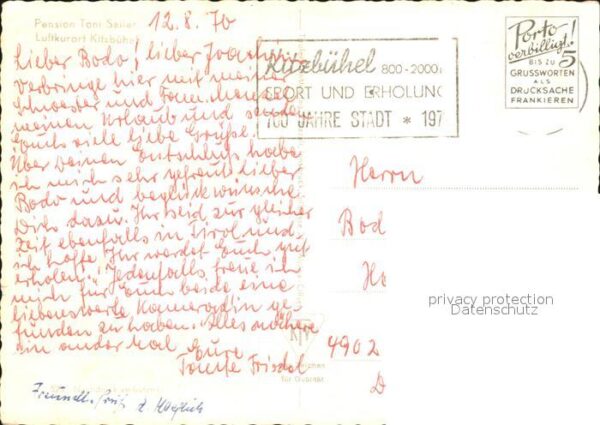 Pension Toni Sailer
Luftkurort Kitzbühel
12.8.70
Lieber Bodo! Lieber Joachim
verbringe hier mit meiner
Schwester und Fam. meinen
meinen Urlaub und sende
Euch viele liebe Grüße.
Über Deinen Entschluß habe
ich mich sehr gefreut, lieber
Bodo und beglückwünsche
Dich dazu. Ihr seid zur gleicher
Zeit ebenfalls in Tirol und
ich hoffe, Ihr werdet Euch gut
erholen. Jedenfalls freue ich
mich für Euch beide eine
liebenswerte Kameradin ge
funden zu haben. Alles nähere
ein ander Mal. Eure
Tante Friedel
Freundl.
Kitzbühel 800-2000
SPORT UND ERHOLUNG
700 JAHRE STADT * 197
Porto
verbilligt!
BIS ZU 5
GRUSSWORTEN
ALS
DRUCKSACHE
FRANKIEREN
Herrn
Bod
Ho
privacy protection
Datenschutz
4902
D